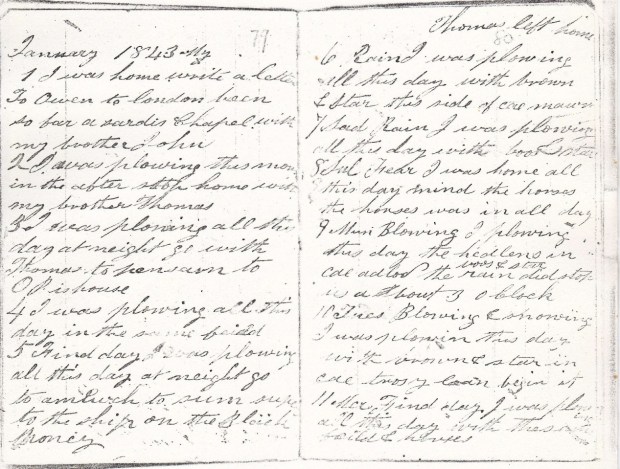 79
January 1843 My
1 I was home write a letter
To Owen to london been
so far a sardis Chapel with
my brother John
2 I was plowing this morn
in the after stop home with
my brother Thomas
3 I was plowing all this
day at neight go with
Thomas to pensarn to
O P is house
4 I was plowing all this
day in the same feidd
5 Find day I was plowing
all this day at neight go
to amlwch to sum sup
to the ship on the Black
Money
Thomas left home
80
6 Rain I was plowing
all this day with brown
& Star this side of cae mawn
7 Sad Rain I was plowing
all this day with boo & star
8 Sul Fear I was home all
this day mind the horses
the horses was in all day
9 Mun Blowing I plowing
this day the hedlens in
boo & star
cae adlod the rain did stop
us a about 3 o block
10 Tues Blowing & snowing
I was plowin this day
with brown & star in
cae begin it
11 Mer Find day I was plow
all this day with the
feild & horses